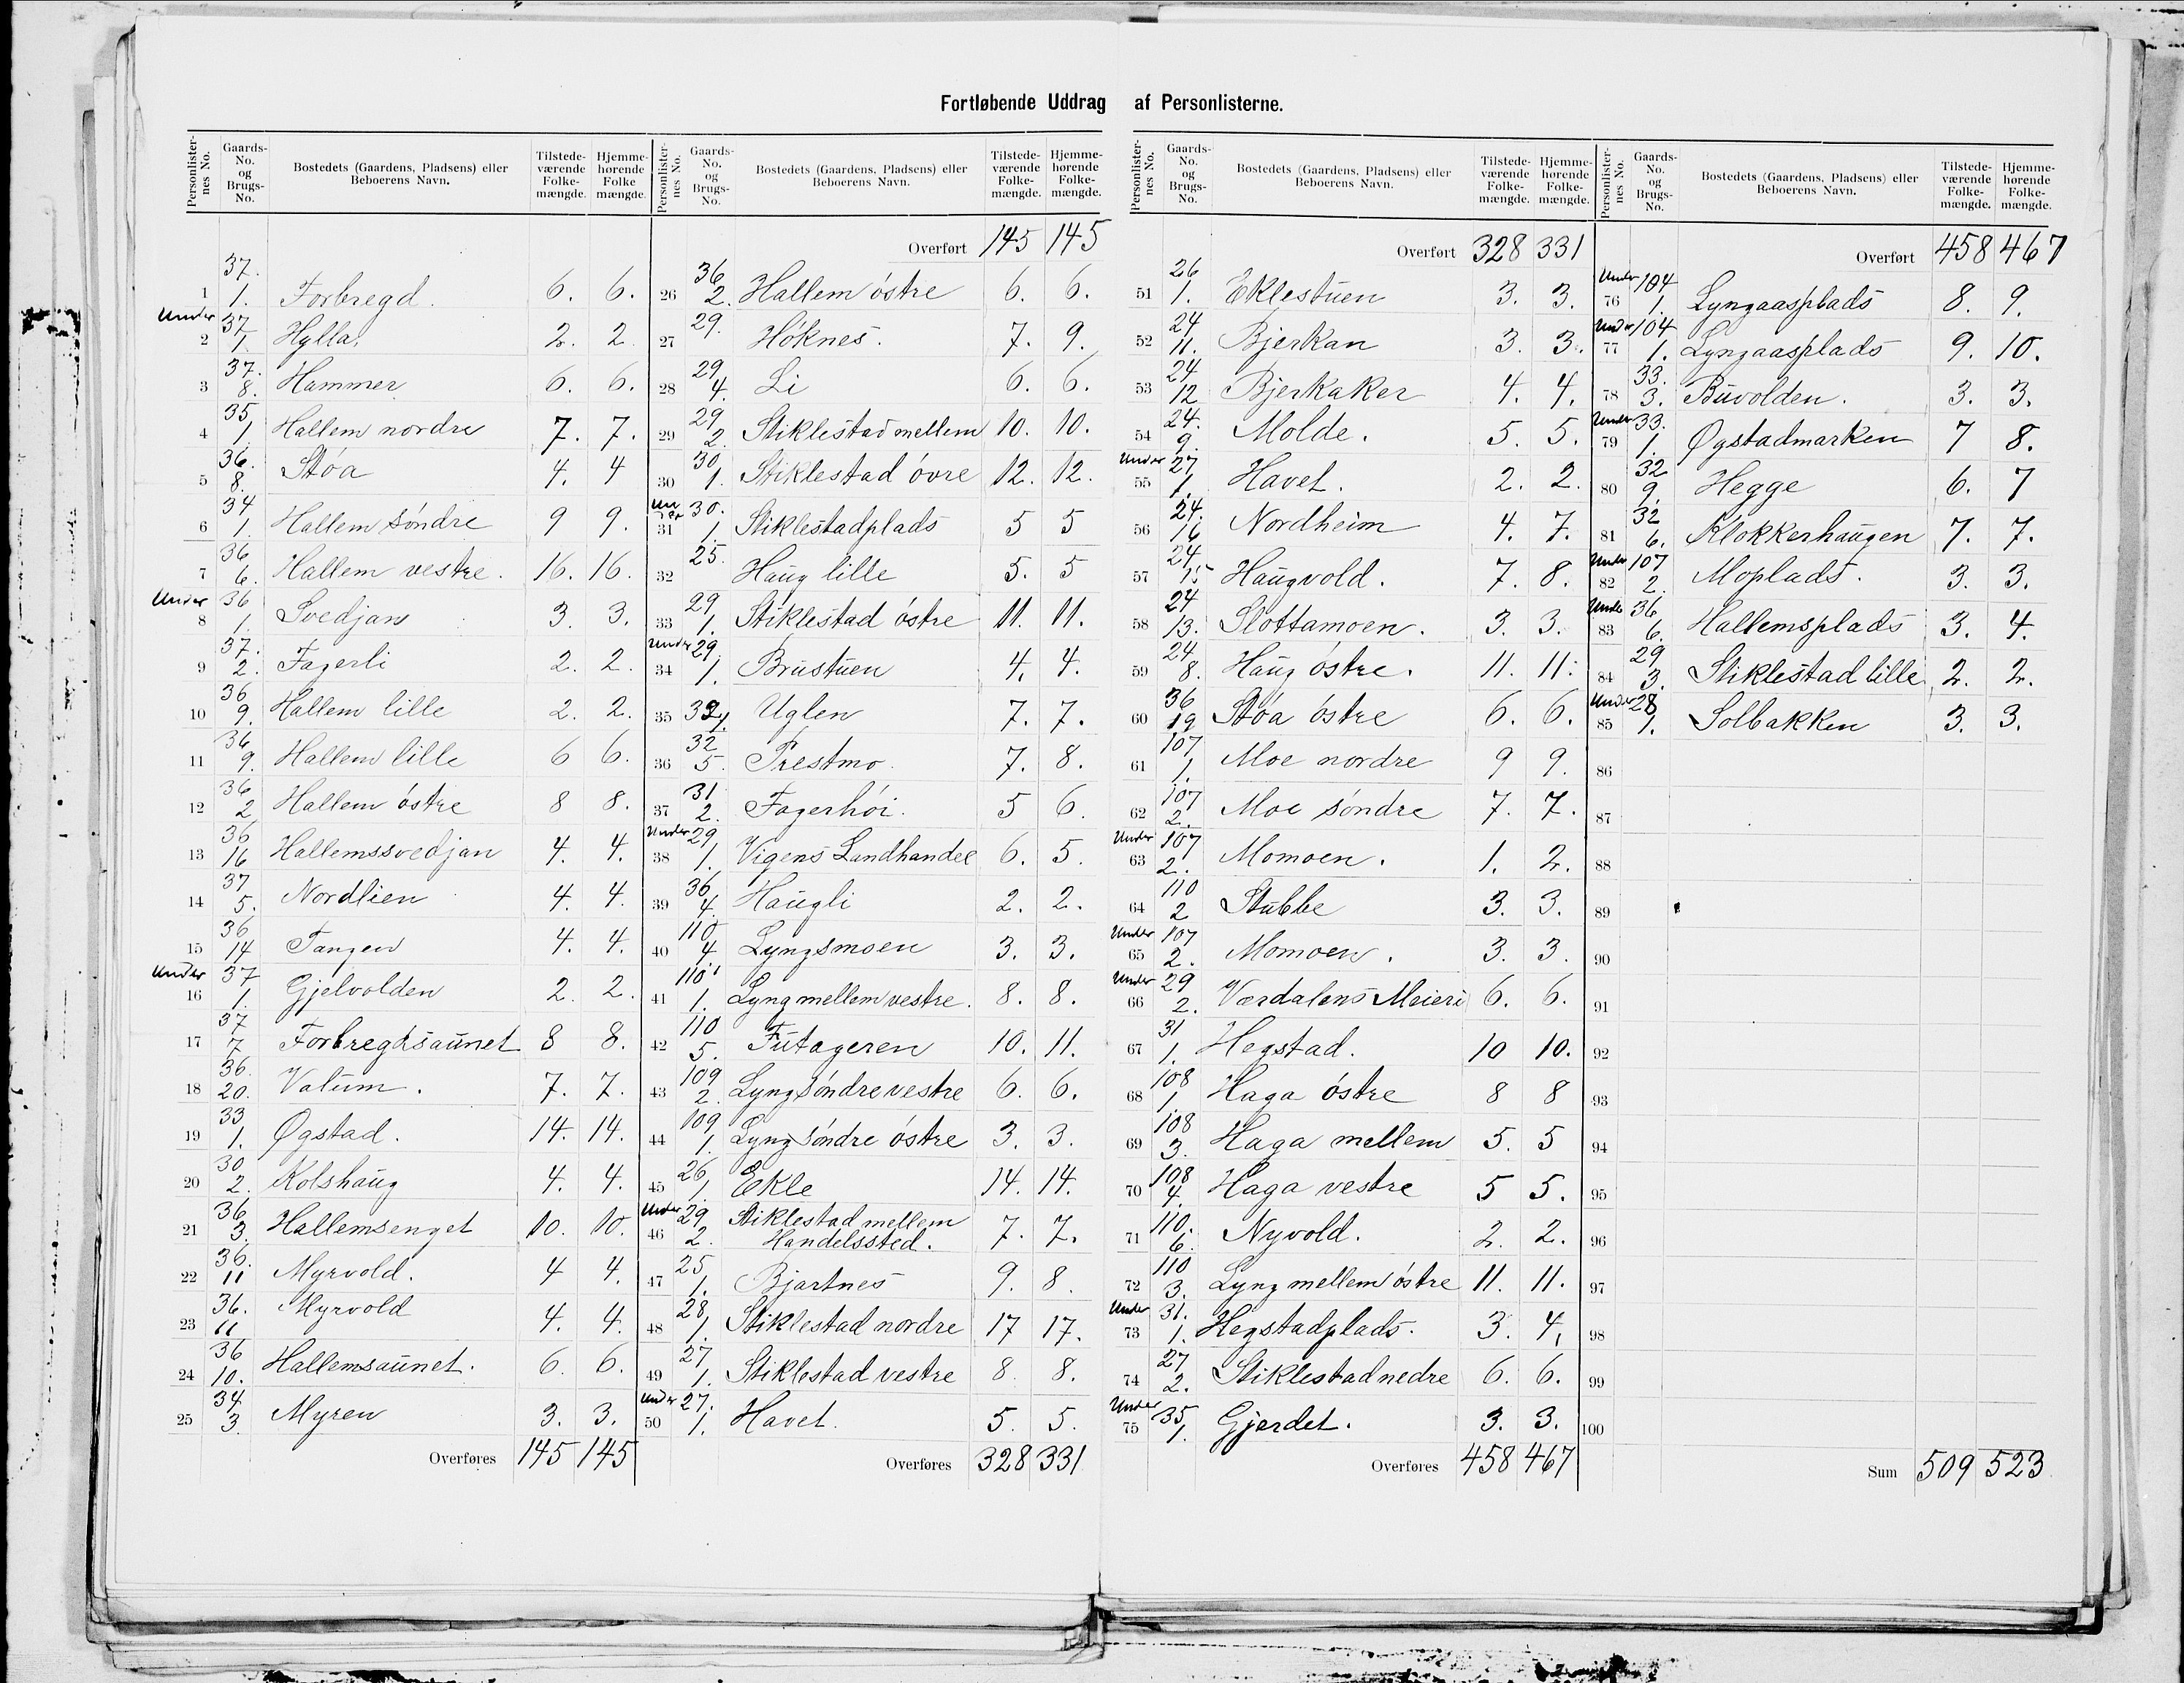 Fortløbende Uddrag af Personlisterne.
Personlister-nes No. Gaards-No. og Brugs-No. Bostedets (Gaardens, Pladsens) eller Beboerens Navn. Tilstede-værende Folke-mængde. Hjemme-hørende Folke mængde.
1 37. 1. Forbregd. 6. 6.
Under 2 37 1. Hylla. 2. 2
3 37. 8. Hammer 6. 6.
4 35 1. Hallem nordre 7. 7.
5 36. 8. Støa 4. 4
6 34 1. Hallem söndre 9 9.
7 36 6. Hallem vestre. 16. 16.
Under 8 36 1. Svedjan 3. 3.
9 37. 2. Fagerli 2. 2.
10 36 9. Hallem lille 2. 2.
11 36 9. Hallem lille 6 6.
12 36 2 Hallem östre 8 8.
13 36 16 Hallemssvedjan 4. 4.
14 37 5. Nordlien 4. 4.
15 36 14 Tangen 4. 4.
Under 16 37 1. Gjelvolden 2. 2.
17 37 7 Forbregdsaunet 8 8.
18 36. 20. Valum. 7. 7.
19 33 1. Øgstad. 14. 14.
20 30 2. Kolshaug 4. 4.
21 36 3. Hallemsenget 10. 10.
22 36. 11 Myrvold. 4 4.
23 36. 11 Myrvold 4. 4.
24 36 10. Hallemsaunet. 6. 6.
25 34 3. Myren 3. 3.
Overføres 145 145
Personlister-nes No. Gaards-No. og Brugs-No. Bostedets (Gaardens, Pladsens) eller Beboerens Navn. Tilstede-værende Folke-mængde. Hjemme-hørende Folke-mængde.
Overført 145 145
26 36 2. Hallem östre 6. 6.
27 29. Höknes. 7. 9.
28 29 4. Li 6. 6.
29 29 2. Stiklestad mellem 10. 10.
30 30 1. Stiklestad övre 12. 12.
Under 31 30. 1. Stiklestadplads 5 5
32 25. Haug lille 5. 5
33 29 1. Stiklestad östre 11. 11.
Under 34 29 1. Brustuen 4. 4.
35 Uglen 7. 7.
36 32 5. Prestmo. 7. 8.
37 31 2. Fagerhöi. 5 6.
Under 38 29 1. Vigens Landhandel 6. 5.
39 36 4. Haugli 2. 2.
40 110 4. Lyngsmoen 3. 3.
41 110 1. Lyng mellem vestre. 8. 8.
42 110 5. Futageren 10. 11.
43 109 2. Lyng söndre vestre 6. 6.
44 109 1. Lyng söndre östre 3. 3.
45 26 1. Ekle 14. 14.
Under 46 29 2. Stiklestad mellem
Handelssted. 7. 7.
47 25 1. Bjartnes 9. 8.
48 28 1. Stiklestad nordre 17 17.
49 27 1. Stiklestad vestre 8. 8.
Under 50 27. 1. Havet. 5. 5.
Overføres 328 331
Personlister-nes No. Gaards-No. og Brugs-No. Bostedets (Gaardens, Pladsens) eller Beboerens Navn. Tilstede-værende Folke-mængde. Hjemme-hørende Folke-mængde.
Overført 328 331
51 26 1. Eklestuen 3. 3.
52 24 11. Bjerkan 3. 3.
53 24 12 Bjerkaker 4. 4.
54 24. 9. Molde. 5. 5.
Under 55 27 1. Havet. 2. 2.
56 24. 16 Nordheim 4. 7.
57 24 15 Haugvold. 7. 8.
58 24 13. Slottamoen. 3. 3.
59 24 8. Haug östre. 11. 11.
60 36 19 Støa östre 6. 6.
61 107 1. Moe nordre 9 9.
62 107 2. Moe söndre 7. 7.
Under 63 107 2. Momoen. 1. 2.
64 110 2 Stubbe 3. 3.
Under 65 107 2. Momoen. 3. 3.
Under 66 29 2. Værdalens Meieri 6. 6.
67 31 1. Hegstad. 10 10.
68 108 1. Haga östre 8 8
69 108 3. Haga mellem 5. 5
70 108 4. Haga vestre 5 5.
71 110. 6. Nyvold. 2. 2.
72 110 3. Lyng mellem östre 11. 11.
Under 73 31. 1. Hegstadplads. 3. 4.
74 27 2. Stiklestad nedre 6. 6.
Under 75 35 1. Gjerdet. 3. 3.
Overføres 458 467
Personlister-nes No. Gaards-No. og Brugs-No. Bostedets (Gaardens, Pladsens) eller Beboerens Navn. Tilstede-værende Folke-mængde. Hjemme-hørende Folke-mængde.
Overført 458 467
Under 76 104 1. Lyngaasplads 8. 9.
Under 77 104 1. Lyngaasplads 9. 10.
78 33. 3. Buvolden. 3. 3.
Under 79 33. 1. Øgstadmarken 7 8.
80 32 9. Hegge 6. 7
81 32 6. Klokkerhaugen 7. 7.
Under 82 107 2. Moplads. 3. 3.
Under 83 36 6. Hallemsplads 3. 4.
84 29 3. Stiklestad lille 2. 2.
Under 85 28 1. Solbakken 3. 3.
86
87
88
89
90
91
92
93
94
95
96
97
98
99
100
Sum 509 523